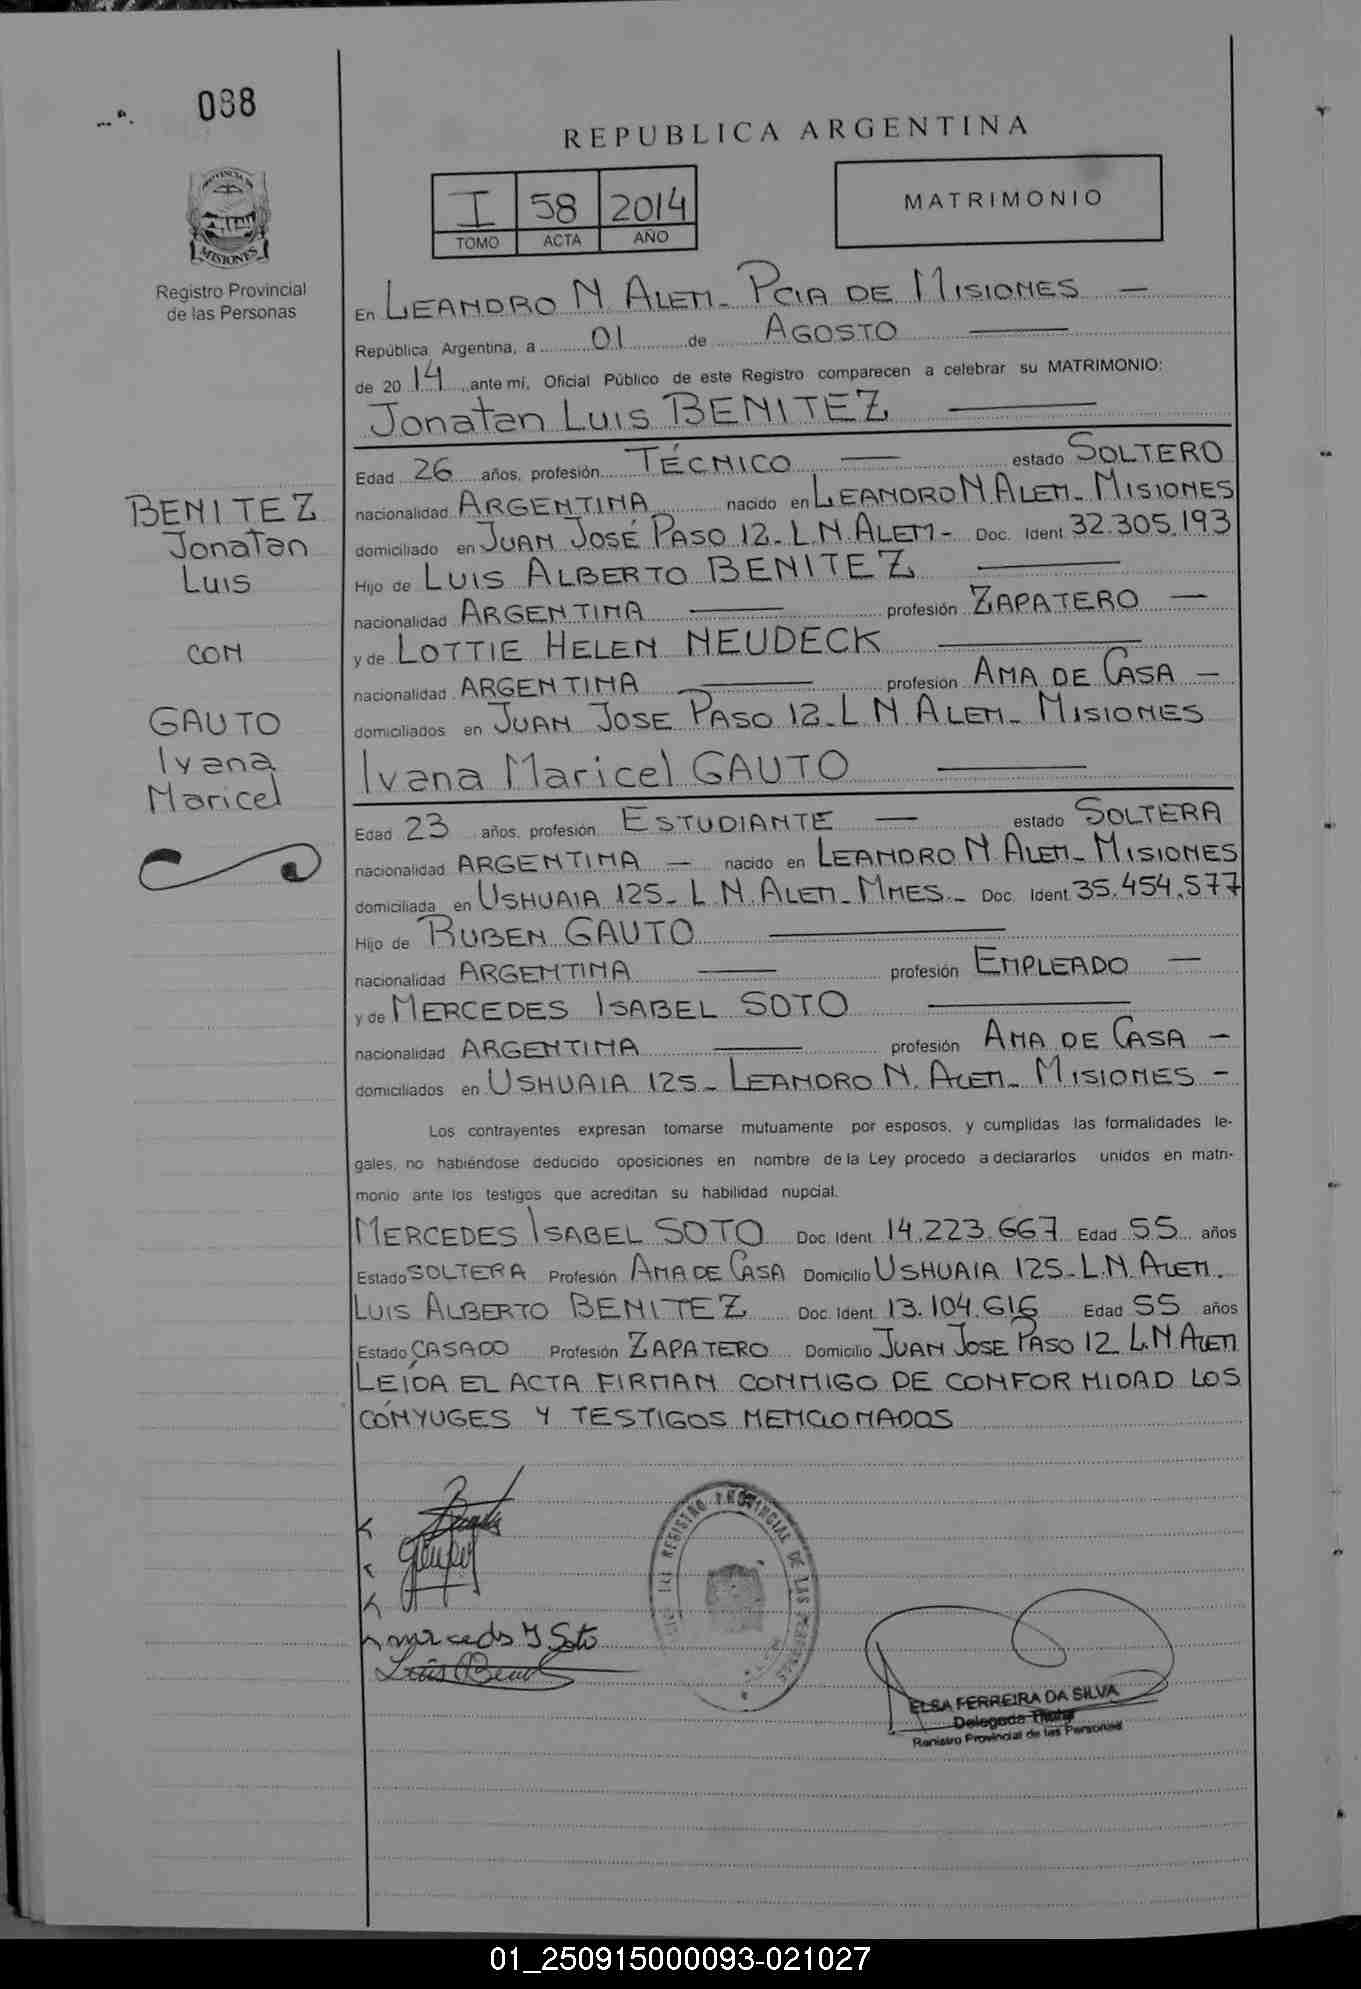 088
PROVINCIA DE
MISIONES
Registro Provincial
de las Personas
REPUBLICA ARGENTINA
I 58 2014
TOMO ACTA AÑO
MATRIMONIO
En LEANDRO N ALEM - PCIA DE MISIONES —
República Argentina, a 01 de AGOSTO —
de 2014 ante mí, Oficial Público de este Registro comparecen a celebrar su MATRIMONIO:
Jonatan Luis BENITEZ —
Edad 26 años, profesión TÉCNICO — estado SOLTERO
nacionalidad ARGENTINA nacido en LEANDRO N. ALEM - MISIONES
domiciliado en JUAN JOSÉ PASO 12 - L.N. ALEM - Doc. Ident. 32.305.193
Hijo de LUIS ALBERTO BENITEZ —
nacionalidad ARGENTINA — profesión ZAPATERO —
y de LOTTIE HELEN NEUDECK —
nacionalidad ARGENTINA — profesión AMA DE CASA —
domiciliados en JUAN JOSE PASO 12 - L N ALEM - MISIONES
Ivana Maricel GAUTO —
Edad 23 años, profesión ESTUDIANTE — estado SOLTERA
nacionalidad ARGENTINA — nacido en LEANDRO N ALEM - MISIONES
domiciliada en USHUAIA 125 - L.N. ALEM - MNES. - Doc. Ident. 35.454.577
Hijo de RUBEN GAUTO —
nacionalidad ARGENTINA — profesión EMPLEADO —
y de MERCEDES ISABEL SOTO —
nacionalidad ARGENTINA — profesión AMA DE CASA —
domiciliados en USHUAIA 125 - LEANDRO N. ALEM - MISIONES -
Los contrayentes expresan tomarse mutuamente por esposos, y cumplidas las formalidades le-
gales, no habiéndose deducido oposiciones en nombre de la Ley procedo a declararlos unidos en matri-
monio ante los testigos que acreditan su habilidad nupcial.
MERCEDES ISABEL SOTO Doc. Ident. 14.223.667 Edad 55 años
Estado SOLTERA Profesión AMA DE CASA Domicilio USHUAIA 125 - L.N. ALEM.
LUIS ALBERTO BENITEZ Doc. Ident. 13.104.616 Edad 55 años
Estado CASADO Profesión ZAPATERO Domicilio JUAN JOSE PASO 12 L.N ALEM
LEÍDA EL ACTA FIRMAN CONMIGO DE CONFORMIDAD LOS
CÓNYUGES Y TESTIGOS MENCIONADOS
BENITEZ
Jonatan
Luis
CON
GAUTO
Ivana
Maricel
REGISTRO PROVINCIAL DE LAS PERSONAS
Mercedes I Soto
ELSA FERREIRA DA SILVA
Delegada Titular
Registro Provincial de las Personas
01_250915000093-021027